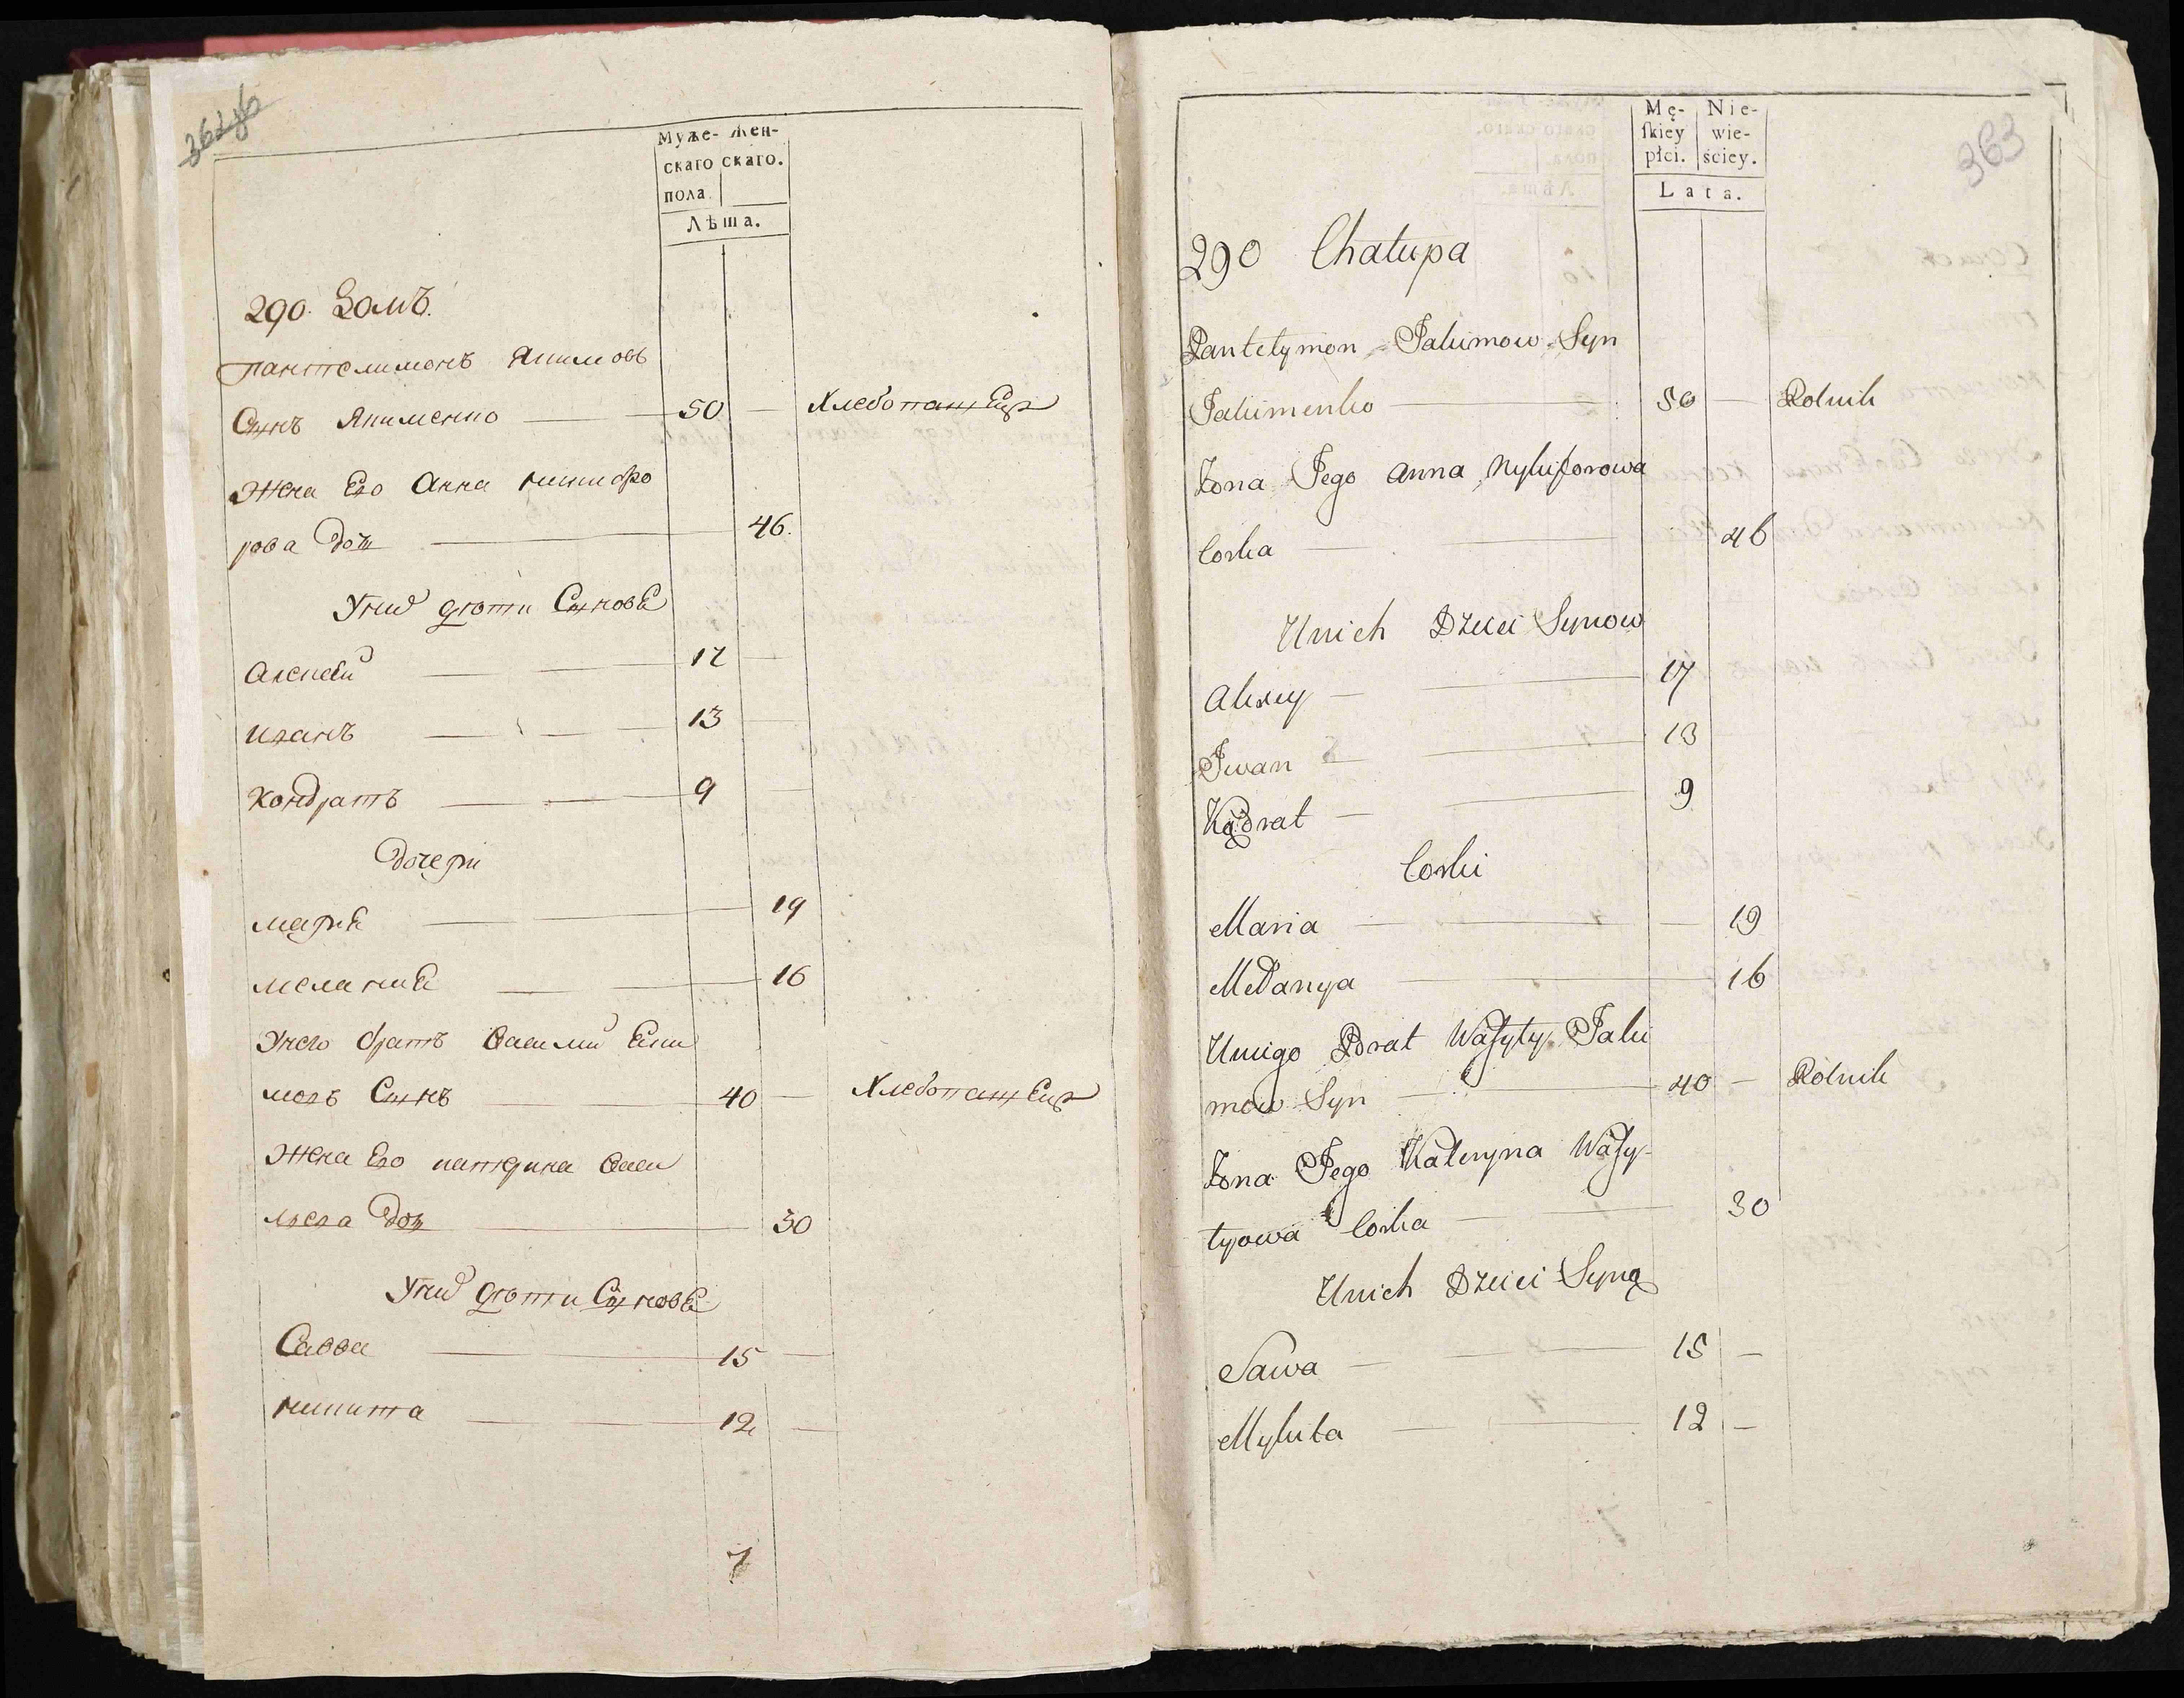 362 об
Муже- Жен-
скаго скаго.
пола.
Лѣта.
290. Домъ.
Пантелимонъ Якимовъ
Сынъ Якименко 50 — Хлебопашецъ
Жена Его Анна Никифо
рова Дочь 46.
У них дѣти Сыновья
Алексей 17 —
Иванъ 13 —
Кондратъ 9 —
Дочери
Марья 19
Мелания 16
У него братъ Василий Еки
мовъ Сынъ 40 — Хлебопашецъ
Жена Его Катерина Васи
льева Дочь 30
У них дѣти Сыновья
Савва 15 —
Никита 12 —
7
363
Mę- Nie-
skiey wie-
płci. ściey.
Lata.
290 Chałupa
Pantelymon Jakimow Syn
Jakimenko 50 — Rolnik
Żona Jego Anna Nykiforowa
Corka 46
Unich Dzieci Synow
Alexey 17
Iwan 13
Kądrat 9
Corki
Maria — 19
Mełanya 16
Uniego Brat Wasyly Jaki
mow Syn 40 — Rolnik
Żona Jego Kateryna Wasy-
lyowa Corka 30
Unich Dzieci Syną
Sawa 15 —
Mykita 12 —